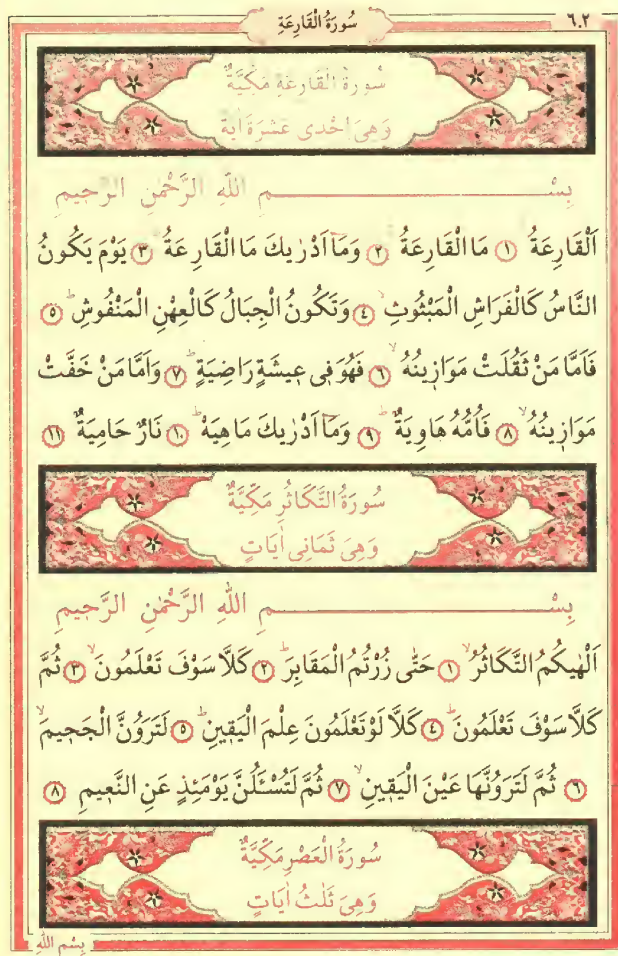 ٦٠٢
سُورَةُ الْقَارِعَةِ
سُورَةُ الْقَارِعَةِ مَكِّيَّةٌ
وَهِيَ اِحْدٰى عَشْرَةَ اٰيَةً
بِسْمِ اللّٰهِ الرَّحْمٰنِ الرَّحِيمِ
اَلْقَارِعَةُ ۙ ﴿١﴾ مَا الْقَارِعَةُ ﴿٢﴾ وَمَٓا اَدْرٰيكَ مَا الْقَارِعَةُ ﴿٣﴾ يَوْمَ يَكُونُ
النَّاسُ كَالْفَرَاشِ الْمَبْثُوثِ ۙ ﴿٤﴾ وَتَكُونُ الْجِبَالُ كَالْعِهْنِ الْمَنْفُوشِ ۜ ﴿٥﴾
فَاَمَّا مَنْ ثَقُلَتْ مَوَازِينُهُ ۙ ﴿٦﴾ فَهُوَ فِي عِيشَةٍ رَاضِيَةٍ ۜ ﴿٧﴾ وَاَمَّا مَنْ خَفَّتْ
مَوَازِينُهُ ۙ ﴿٨﴾ فَاُمُّهُ هَاوِيَةٌ ۜ ﴿٩﴾ وَمَٓا اَدْرٰيكَ مَاهِيَهْ ۜ ﴿١٠﴾ نَارٌ حَامِيَةٌ ﴿١١﴾
سُورَةُ التَّكَاثُرِ مَكِّيَّةٌ
وَهِيَ ثَمَانِي اٰيَاتٍ
بِسْمِ اللّٰهِ الرَّحْمٰنِ الرَّحِيمِ
اَلْهٰيكُمُ التَّكَاثُرُ ۙ ﴿١﴾ حَتّٰى زُرْتُمُ الْمَقَابِرَ ۜ ﴿٢﴾ كَلَّا سَوْفَ تَعْلَمُونَ ۙ ﴿٣﴾ ثُمَّ
كَلَّا سَوْفَ تَعْلَمُونَ ۜ ﴿٤﴾ كَلَّا لَوْ تَعْلَمُونَ عِلْمَ الْيَقِينِ ۜ ﴿٥﴾ لَتَرَوُنَّ الْجَحِيمَ ۙ
﴿٦﴾ ثُمَّ لَتَرَوُنَّهَا عَيْنَ الْيَقِينِ ۙ ﴿٧﴾ ثُمَّ لَتُسْـَٔلُنَّ يَوْمَئِذٍ عَنِ النَّعِيمِ ﴿٨﴾
سُورَةُ الْعَصْرِ مَكِّيَّةٌ
وَهِيَ ثَلٰثُ اٰيَاتٍ
بِسْمِ اللّٰهِ